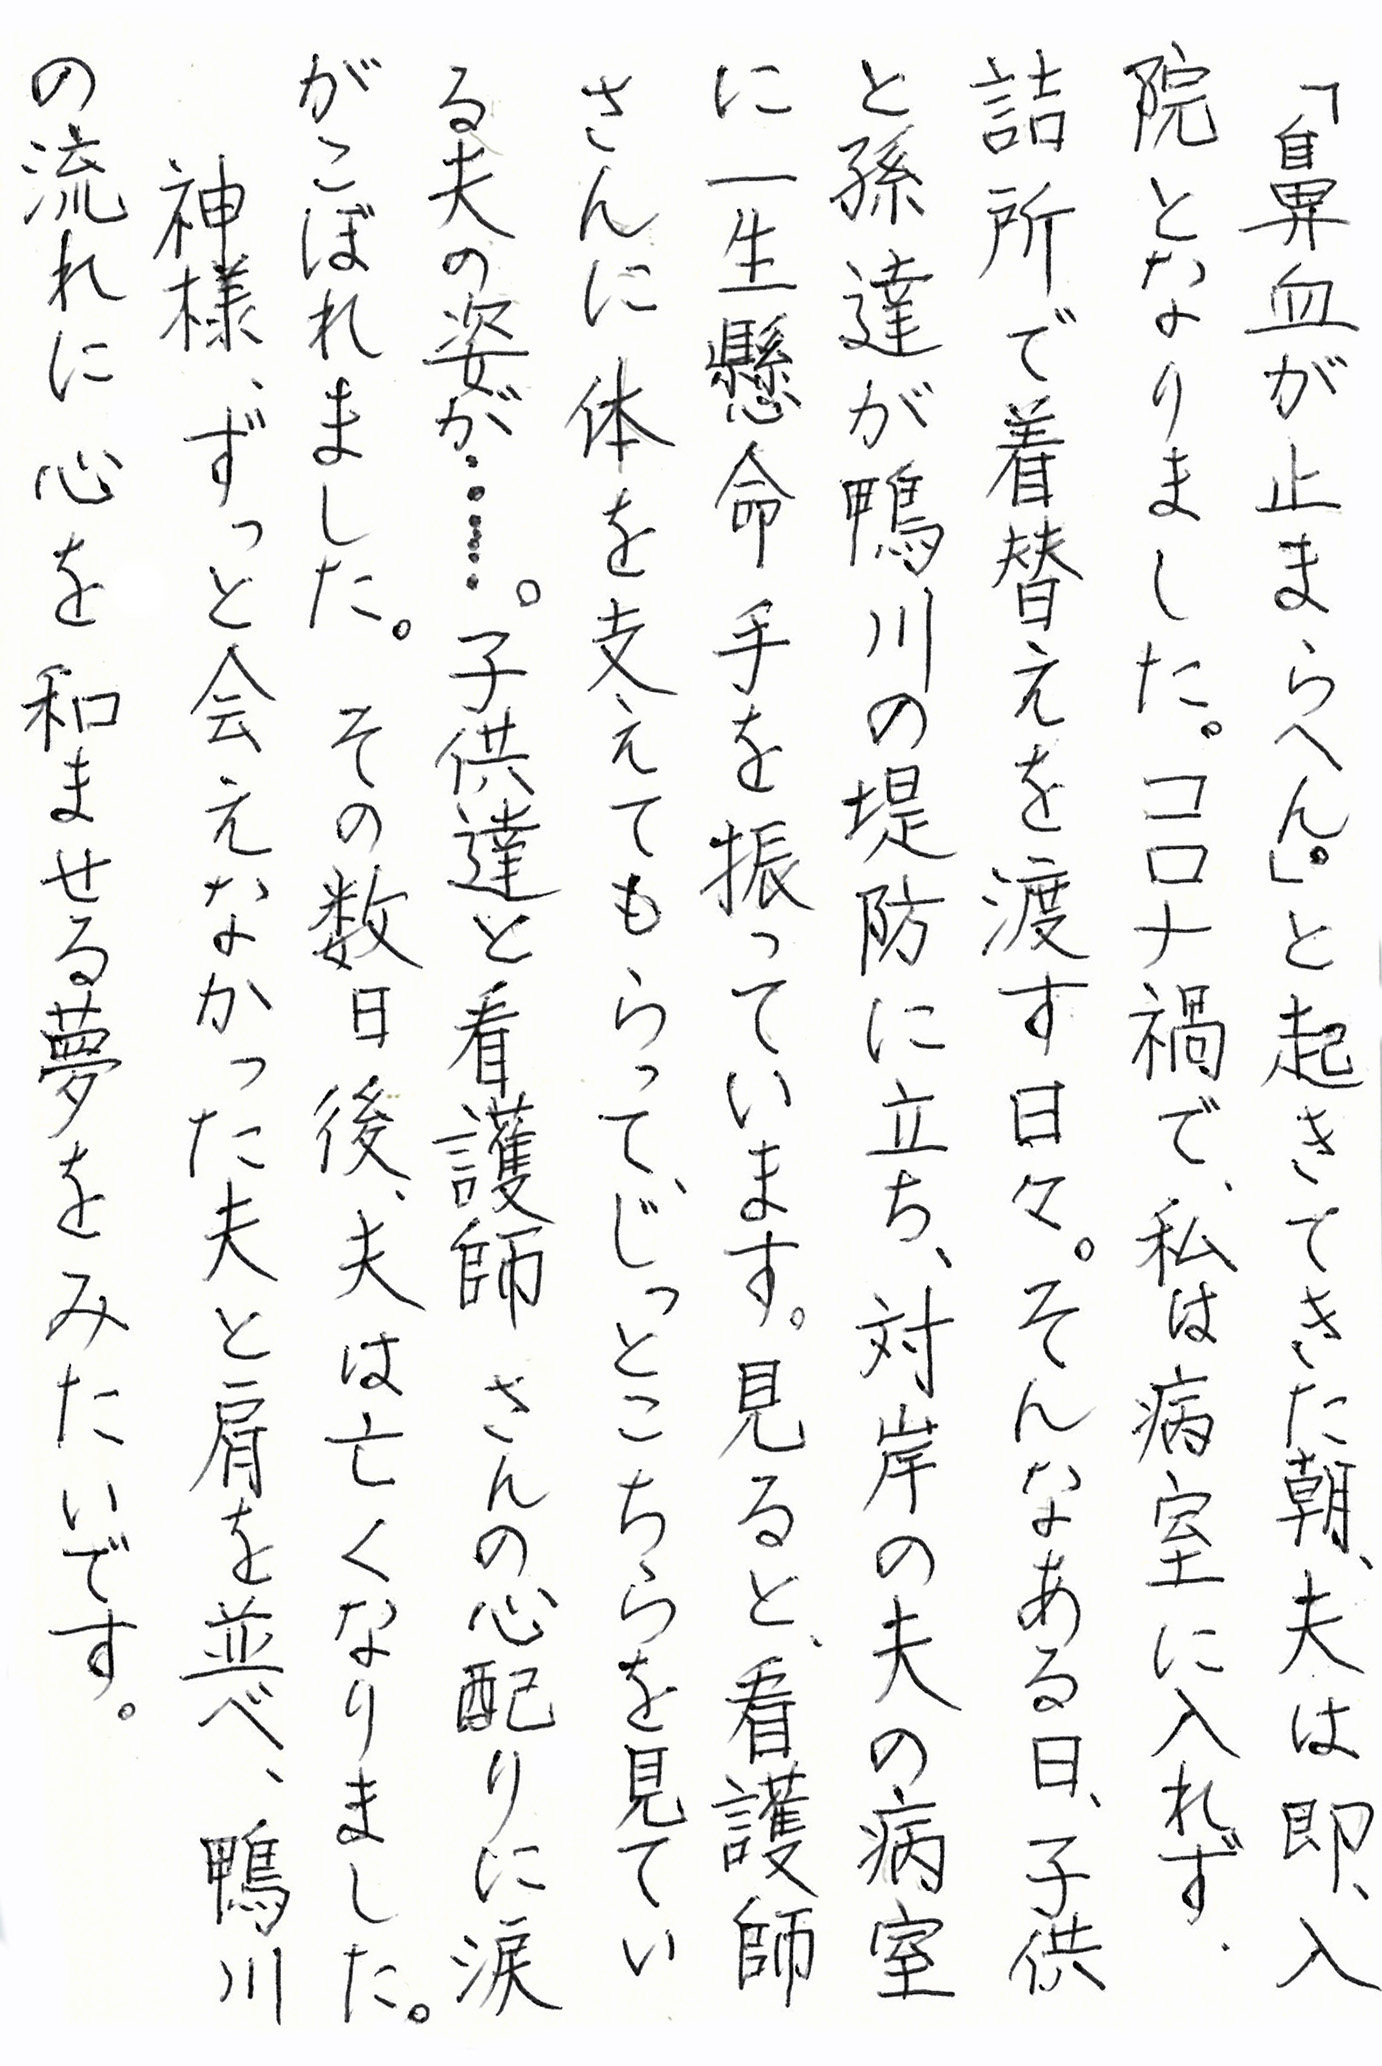 「鼻血が止まらへん。」と起きてきた朝、夫は即、入
院となりました。コロナ禍で、私は病室に入れず
詰所で着替えを渡す日々。そんなある日、子供
と孫達が鴨川の堤防に立ち、対岸の夫の病室
に一生懸命手を振っています。見ると、看護師
さんに体を支えてもらって、じっとこちらを見てい
る夫の姿が……。子供達と看護師さんの心配りに涙
がこぼれました。その数日後、夫は亡くなりました。
神様、ずっと会えなかった夫と肩を並べ、鴨川
の流れに心を和ませる夢をみたいです。